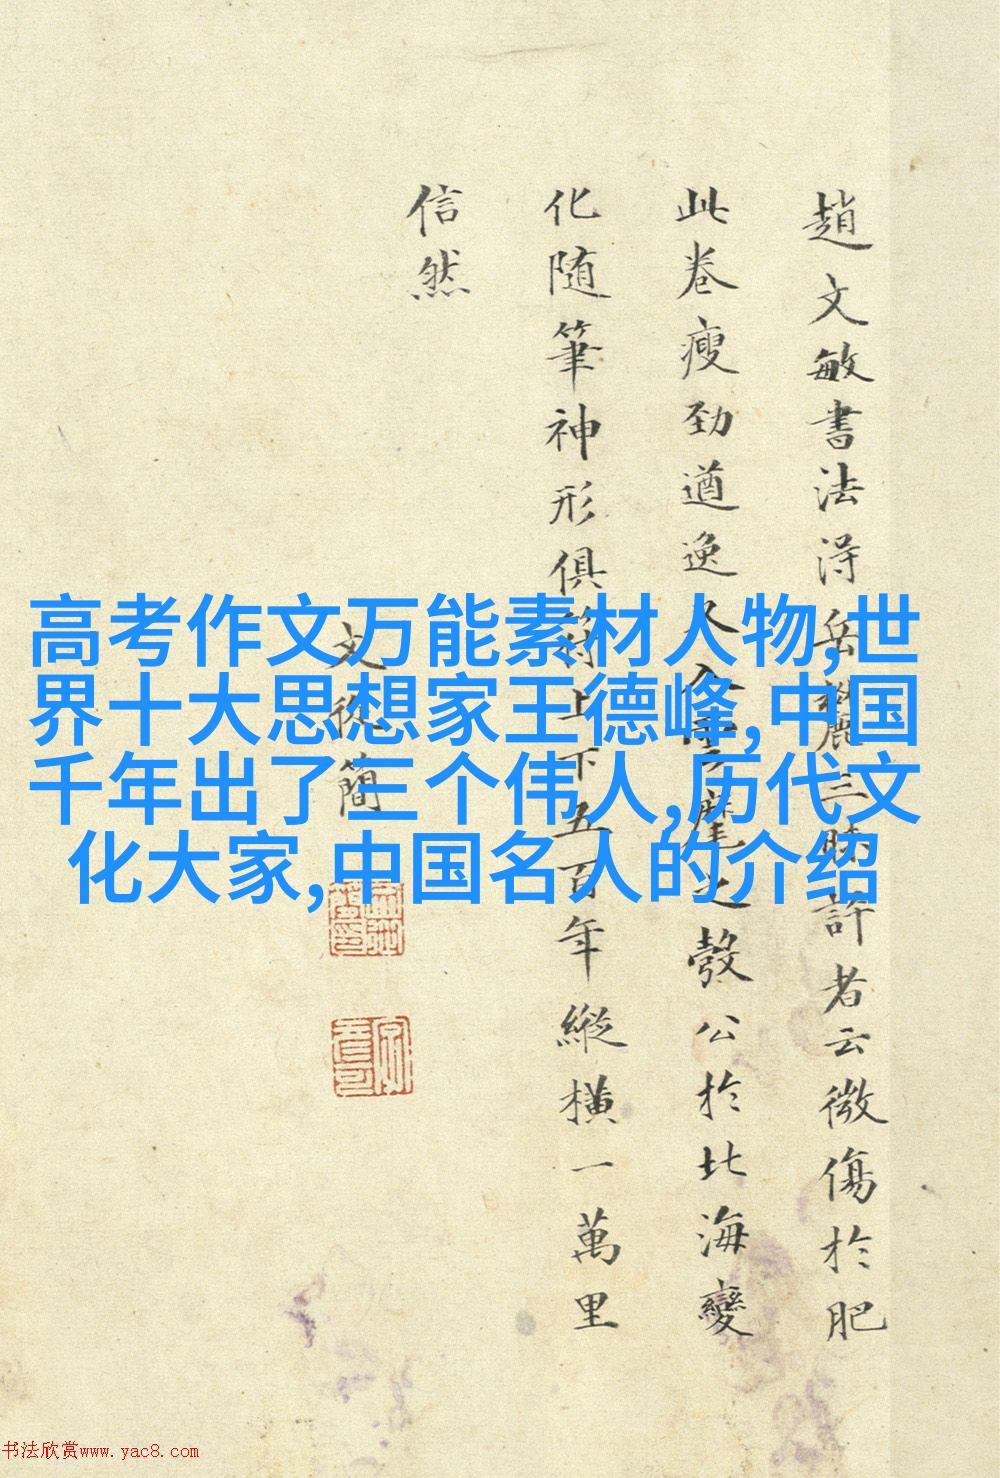 趙文敏書法淂岳麓三昧評者云微傷於肥
此卷瘦勁遒逸又入雲麾之彀公於北海變
化随筆神形俱符上下五百年縱橫一萬里
信然
文從簡
高考作文万能素材人物,世
界十大思想家王德峰,中国
千年出了三个伟人,历代文
化大家,中国名人的介绍
书法欣赏www.yac8.com